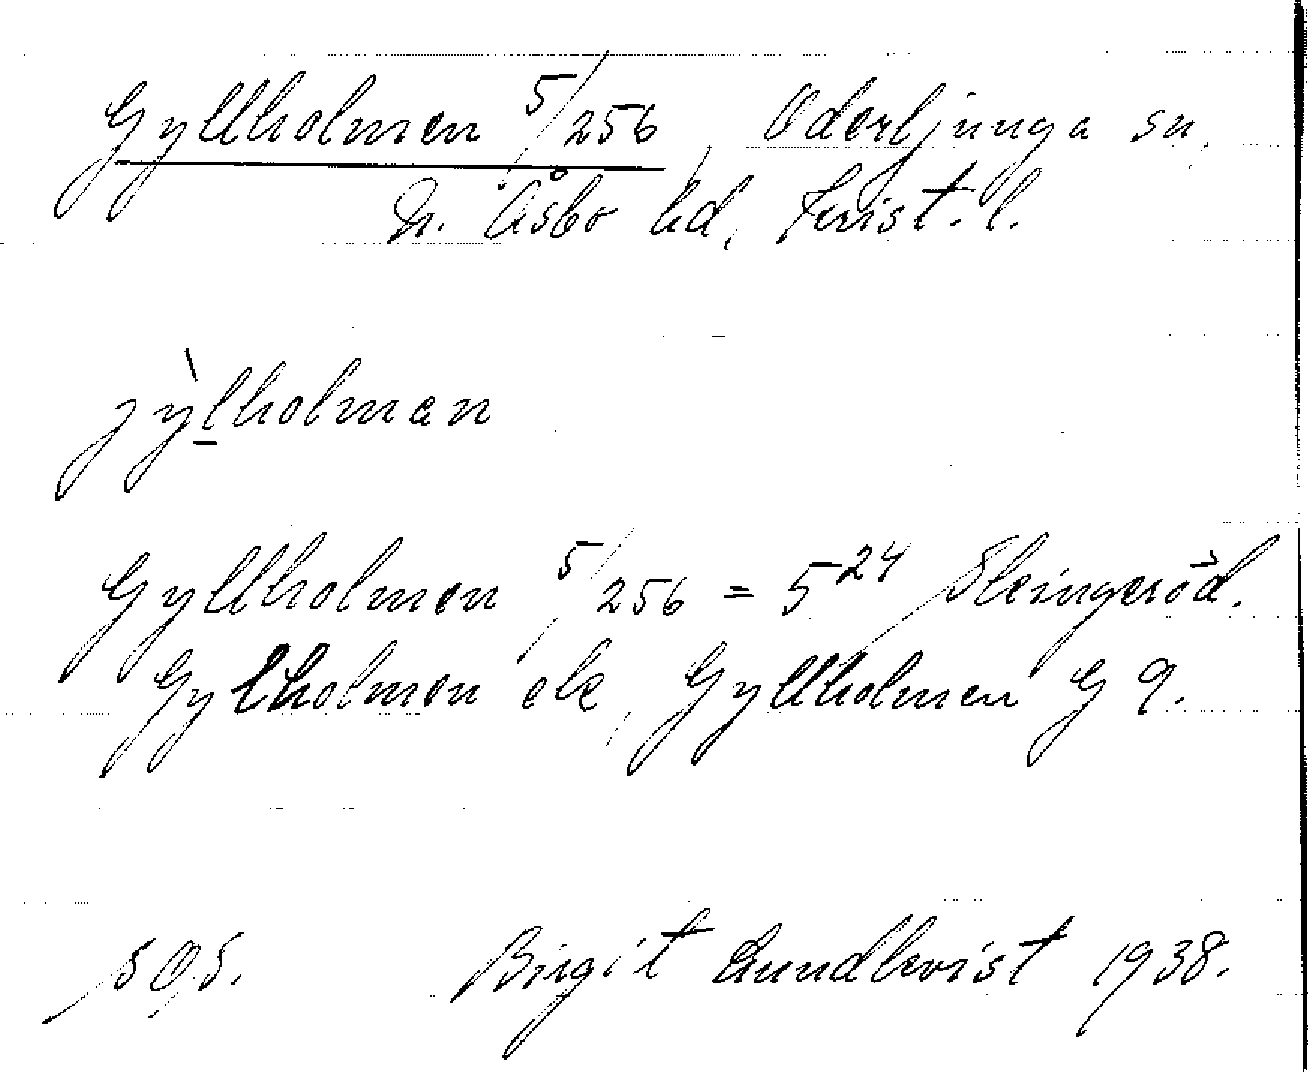 Gyllholmen 5/256, Oderljunga sn,
N. Åsbo hd, Krist. l.
jỳlholman
Gyllholmen 5/256 = 5²⁴ Sleingeröd.
Gylholmen ek, Gyllholmen G 9.
Birgit Lundkvist 1938.